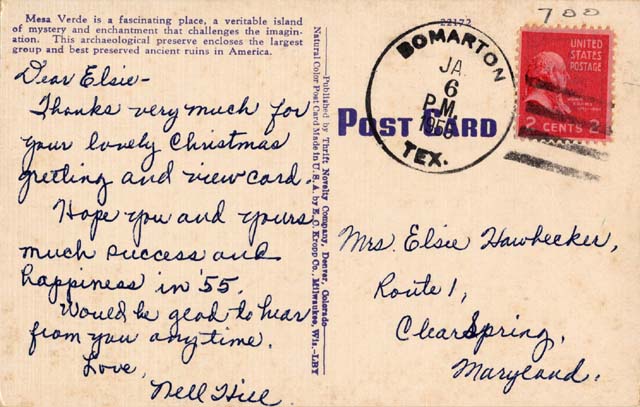 Mesa Verde is a fascinating place, a veritable island
of mystery and enchantment that challenges the imagin-
ation. This archaeological preserve encloses the largest
group and best preserved ancient ruins in America.
22172
700
Dear Elsie-
Thanks very much for
your lovely Christmas
greeting and view card.
Hope you and yours
much success and
happiness in '55.
Would be glad to hear
from you anytime.
Love,
Nell Hill
—Published by Thrift Novelty Company, Denver, Colorado—
Natural Color Post Card Made in U. S. A. by E. C. Kropp Co., Milwaukee, Wis.—LBY
POST CARD
BOMARTON
JA
6
P.M.
TEX.
UNITED
STATES
POSTAGE
2 CENTS 2
Mrs. Elsie Hawbecker,
Route 1,
Clear Spring,
Maryland.